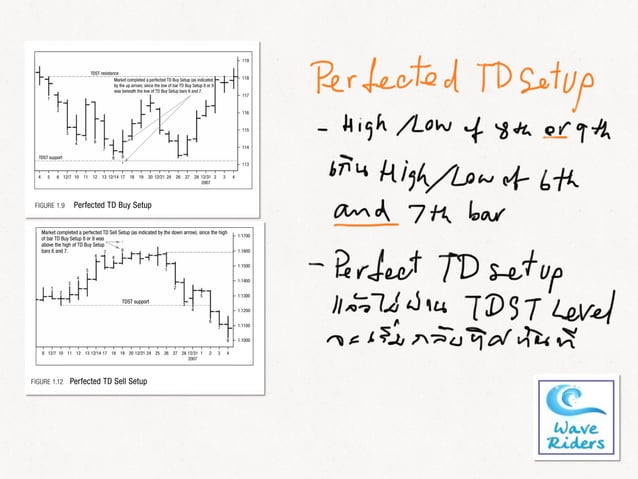 TDST resistance
Market completed a perfected TD Buy Setup (as indicated
by the up arrow), since the low of bar TD Buy Setup 8 or 9
was beneath the low of TD Buy Setup bars 6 and 7.
TDST support
119
118
117
116
115
114
113
4 5 6 12/7 10 11 12 13 12/14 17 18 19 20 12/21 24 26 27 28 12/31 2 3 4
2007
FIGURE 1.9 Perfected TD Buy Setup
Market completed a perfect TD Sell Setup (as indicated by the down arrow), since the high
of bar TD Buy Setup 8 or 9 was
above the high of TD Buy Setup
bars 6 and 7.
TDST support
1.1700
1.1600
1.1500
1.1400
1.1300
1.1200
1.1100
1.1000
6 12/7 10 11 12 13 12/14 17 18 19 20 12/21 24 25 26 27 28 12/31 1 2 3 4
2007
FIGURE 1.12 Perfected TD Sell Setup
Perfected TD Setup
- High/Low of 8th or 9th
เกิน High/Low of 6th
and 7th bar
- Perfect TD setup
แล้วไม่ผ่าน TDST Level
จะเริ่มกลับทิศทันที
Wave
Riders